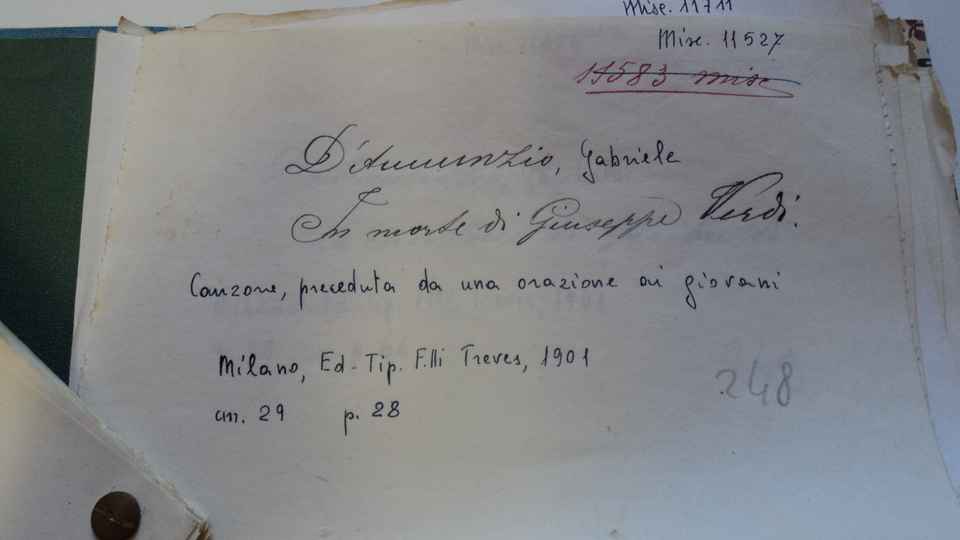 Misc. 11711
Misc. 11527
11583 misc
D'Annunzio, Gabriele
In morte di Giuseppe Verdi.
Canzone, preceduta da una orazione ai giovani
Milano, Ed-Tip. F.lli Treves, 1901
cm. 29 p. 28
248